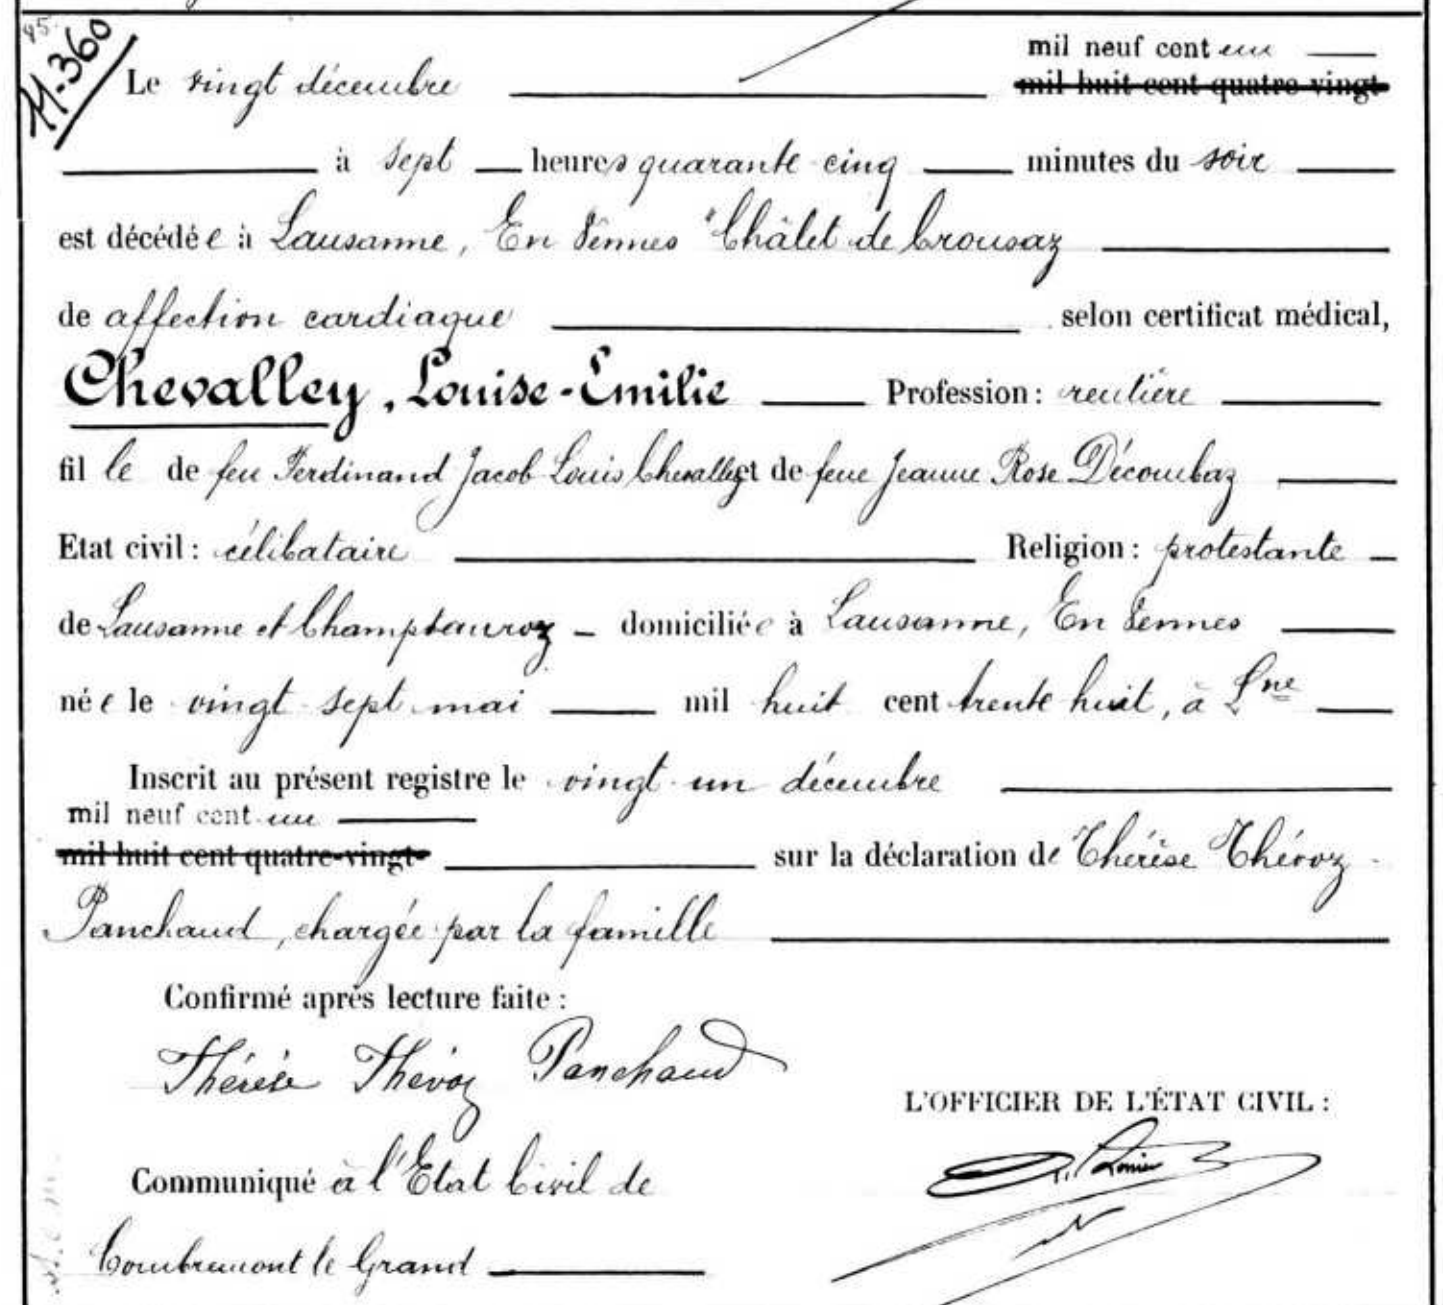 11.360
Le vingt décembre mil neuf cent un
mil huit cent quatre-vingt
à sept heures quarante cinq minutes du soir
est décédée à Lausanne, En Vennes "Châlet de Crousaz
de affection cardiaque selon certificat médical,
Chevalley, Louise-Emilie Profession: rentière
fille de feu Ferdinand Jacob Louis Chevalley et de feue Jeanne Rose Décombaz
Etat civil: célibataire Religion: protestante
de Lausanne et Champtauroz domiciliée à Lausanne, En Vennes
née le vingt sept mai mil huit cent trente huit, à Lne
Inscrit au présent registre le vingt un décembre
mil neuf cent un
mil huit cent quatre-vingt- sur la déclaration de Thérèse Thévoz-
Panchaud, chargée par la famille
Confirmé après lecture faite:
Thérèse Thévoz Panchaud
L'OFFICIER DE L'ÉTAT CIVIL:
Communiqué à l'Etat Civil de
Combremont le Grand